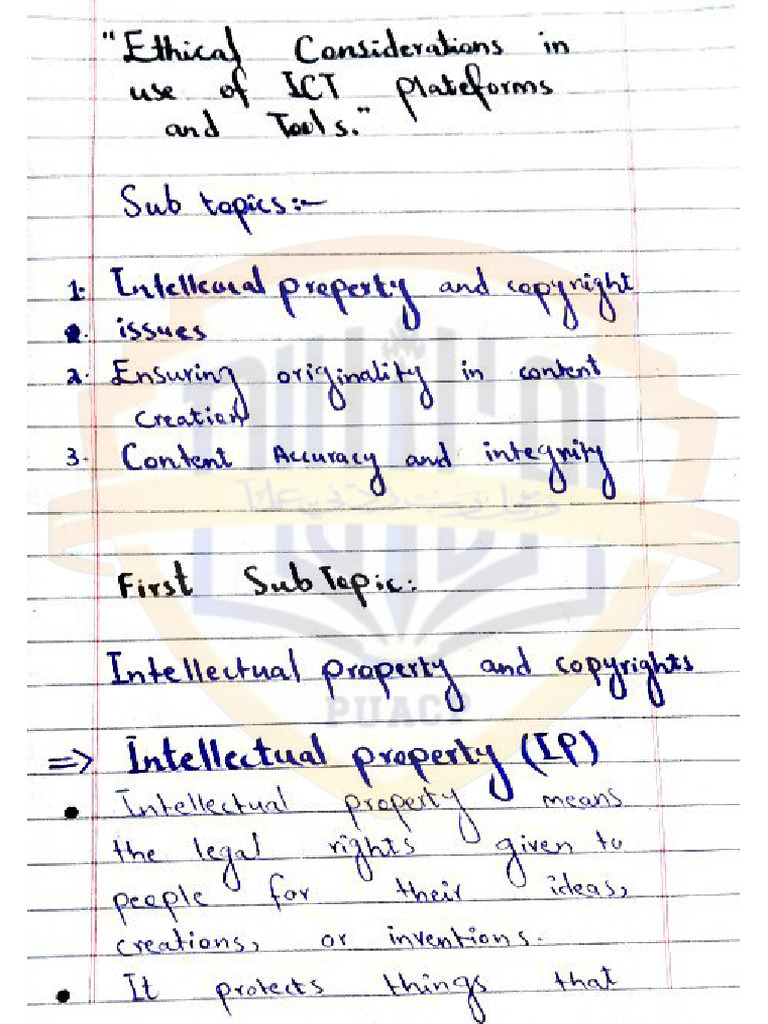 "Ethical Considerations in
use of ICT plateforms
and Tools."
Sub topics:-
1. Intellecual property and copyright
2. issues
2. Ensuring originality in content
creation
3. Content Accuracy and integrity
First SubTopic:
Intellectual property and copyrights
PUACP
=> Intellectual property (IP)
• Intellectual property means
the legal rights given to
people for their ideas,
creations, or inventions.
• It protects things that